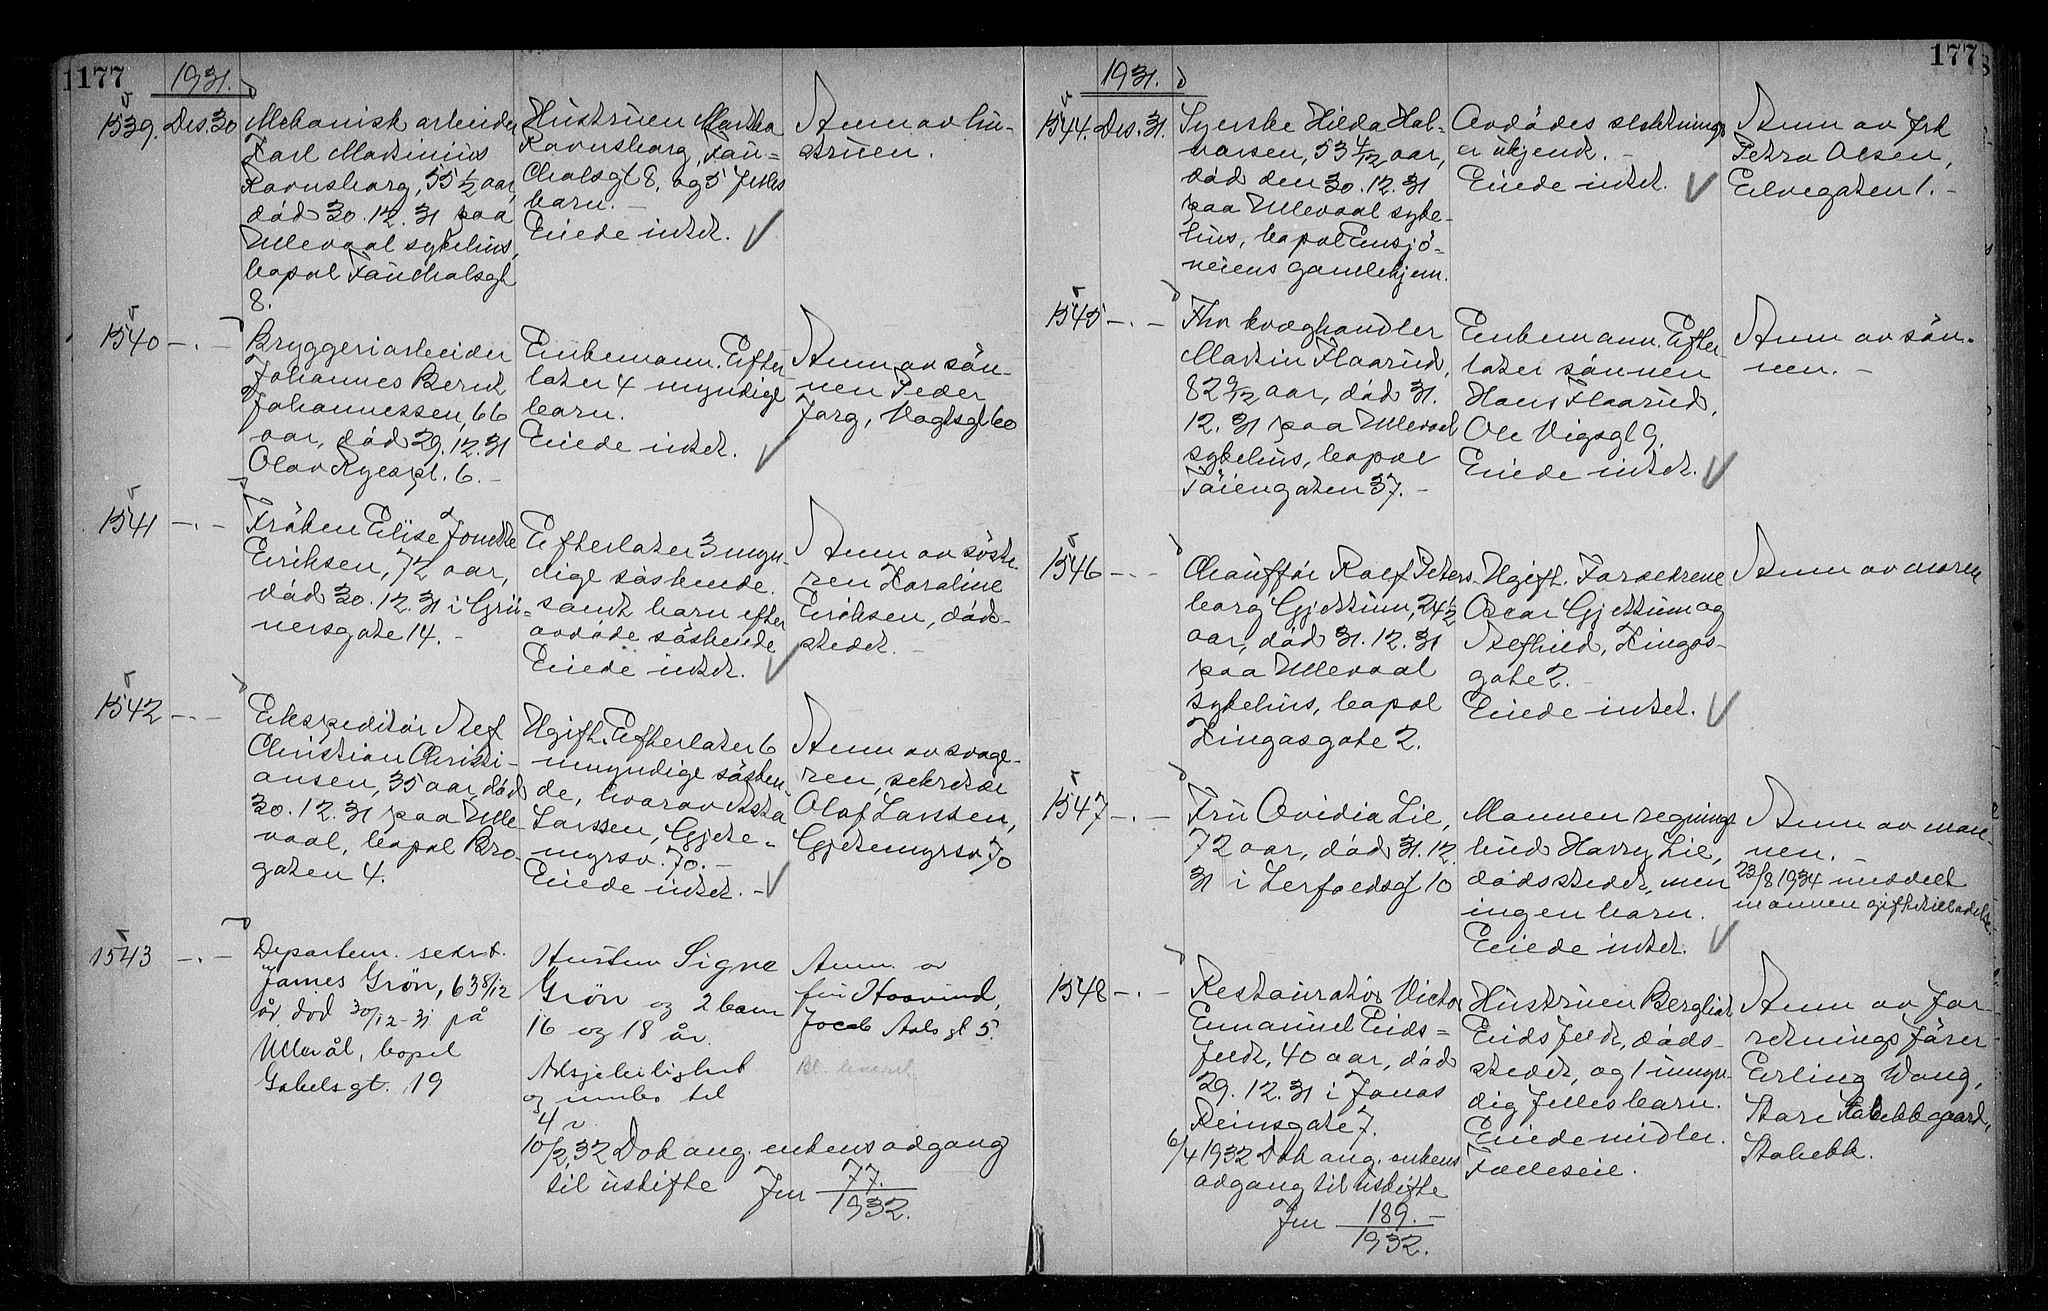 177
1931.
1539. Des. 30
Mekanisk arbeider
Karl Martinius
Ravnsborg, 55 1/2 aar,
död 30.12.31 paa
Ullevaal sykehus,
bopæl Fauchalsgt
8.
Hustruen Martha
Ravnsborg, Fau=
chalsgt 8, og 5 felles
barn. –
Eiede intet.
Anm av hu-
struen.
1540 – . –
Bryggeriarbeider
Johannes Bernt
Johannessen, 66
aar, död 29.12.31
Olav Ryespl. 6. –
Enkemann. Efter-
later 4 myndige
barn.
Eiede intet.
Anm av søn-
nen Peder
Vogtsgt 60
1541 – . –
Fröken Elise Jonette
Eriksen, 72 aar,
död 30.12.31 i Grü-
nersgate 14. –
Efterlater 3 myn-
dige söskende
samt barn efter
avdöde söskende
Eiede intet.
Anm av söste-
ren Karoline
Eriksen, död-
stedet. –
1542 – . –
Ekspeditör Alf
Christian Christi-
ansen, 35 aar, död
30.12.31 paa Ulle-
vaal, bopæl Bro-
gaten 4.
Ugift. Efterlater 6
myndige sösken-
de, hvorav Asta
Larssen, Gjete=
myrsv. 70. –
Eiede intet. –
Anm av svoge-
ren, sekretær
Olaf Larssen,
Gjetemyrsv. 70
1543 – . –
Departem. sekret.
James Grön, 63 8/12
år, död 30/12-31 på
Ullevål, bopel
Gabelsgt. 19
Hustru Signe
Grön og 2 barn
16 og 18 år.
og innbo til
10/2 32 Dok ang. enkens adgang
til uskifte Jnr 77./1932.
Anm. av
fru Hosvind,
Jacob Aalsgt 5.
177
1931.
1544. Des. 31.
Syerske Hilda Hal-
varsen, 53 4/12 aar,
död den 30.12.31
paa Ullevaal syke-
hus, bopæl Ensjö-
veiens gamlehjem.
Avdödes slektninger
er ukjendt. –
Eiede intet.
Anm av frk
Petra Olsen,
Elvegaten 1. –
1545 – . –
Fhv kvæghandler
Martin Flaarud,
82 9/12 aar, död 31.
12.31 paa Ullevaal
sykehus, bopæl
Töiengaten 37. –
Enkemann. Efter-
later sønnen
Hans Flaarud,
Ole Vigsgt 9.
Eiede intet.
Anm av søn-
nen. –
1546 – . –
Chaufför Rolf Peters-
borg Gjettum, 24 1/2
aar, död 31.12.31
paa Ullevaal
sykehus, bopæl
Kingosgate 2.
Ugift. Forældrene
Oscar Gjettum og
Alfhild, Kingos-
gate 2. –
Eiede intet.
Anm av moren
1547 – . –
Fru Ovidia Lie,
72 aar, död 31.12.
31 i Lerfaldsgt 10
Mannen regnings-
bud Harry Lie,
dödsstedet, men
ingen barn.
Eiede intet.
Anm av man-
nen. –
23/8 1934 meddelt
mannen giftetilladelse.
1548 – . –
Restauratör Victor
Emanuel Eids=
feldt, 40 aar, död
29.12.31 i Jonas
Reinsgate 7.
6/4 1932 Dok ang. enkens
adgang til uskifte
Jnr 189. –/1932.
Hustruen Bergliot
Eidsfeldt, döds-
stedet, og 1 umyn-
dig felles barn.
Eiede midler.
Fælleseie.
Anm av for-
retningsförer
Erling Wang,
Store Stabekk gaard,
Stabekk.